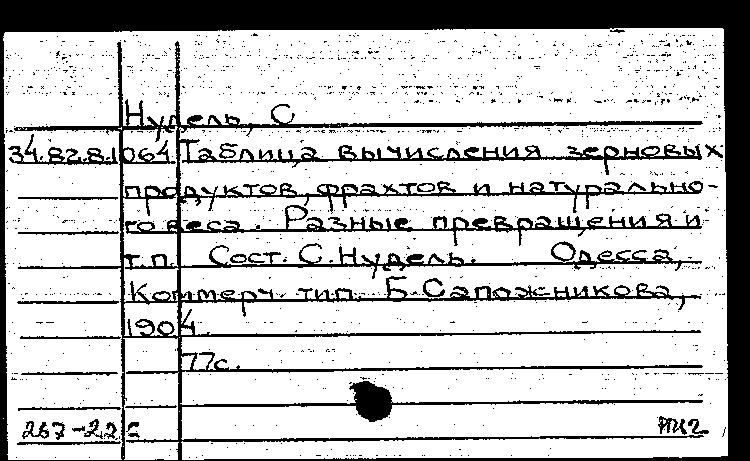 Нудель, С
34.82.8.1064 Таблица вычисления зерновых
продуктов, фрахтов и натурально-
го веса. Разные превращения и
т.п. Сост. С.Нудель. Одесса,
Коммерч. тип. Б.Сапожникова,
1904.
77с.
267-22